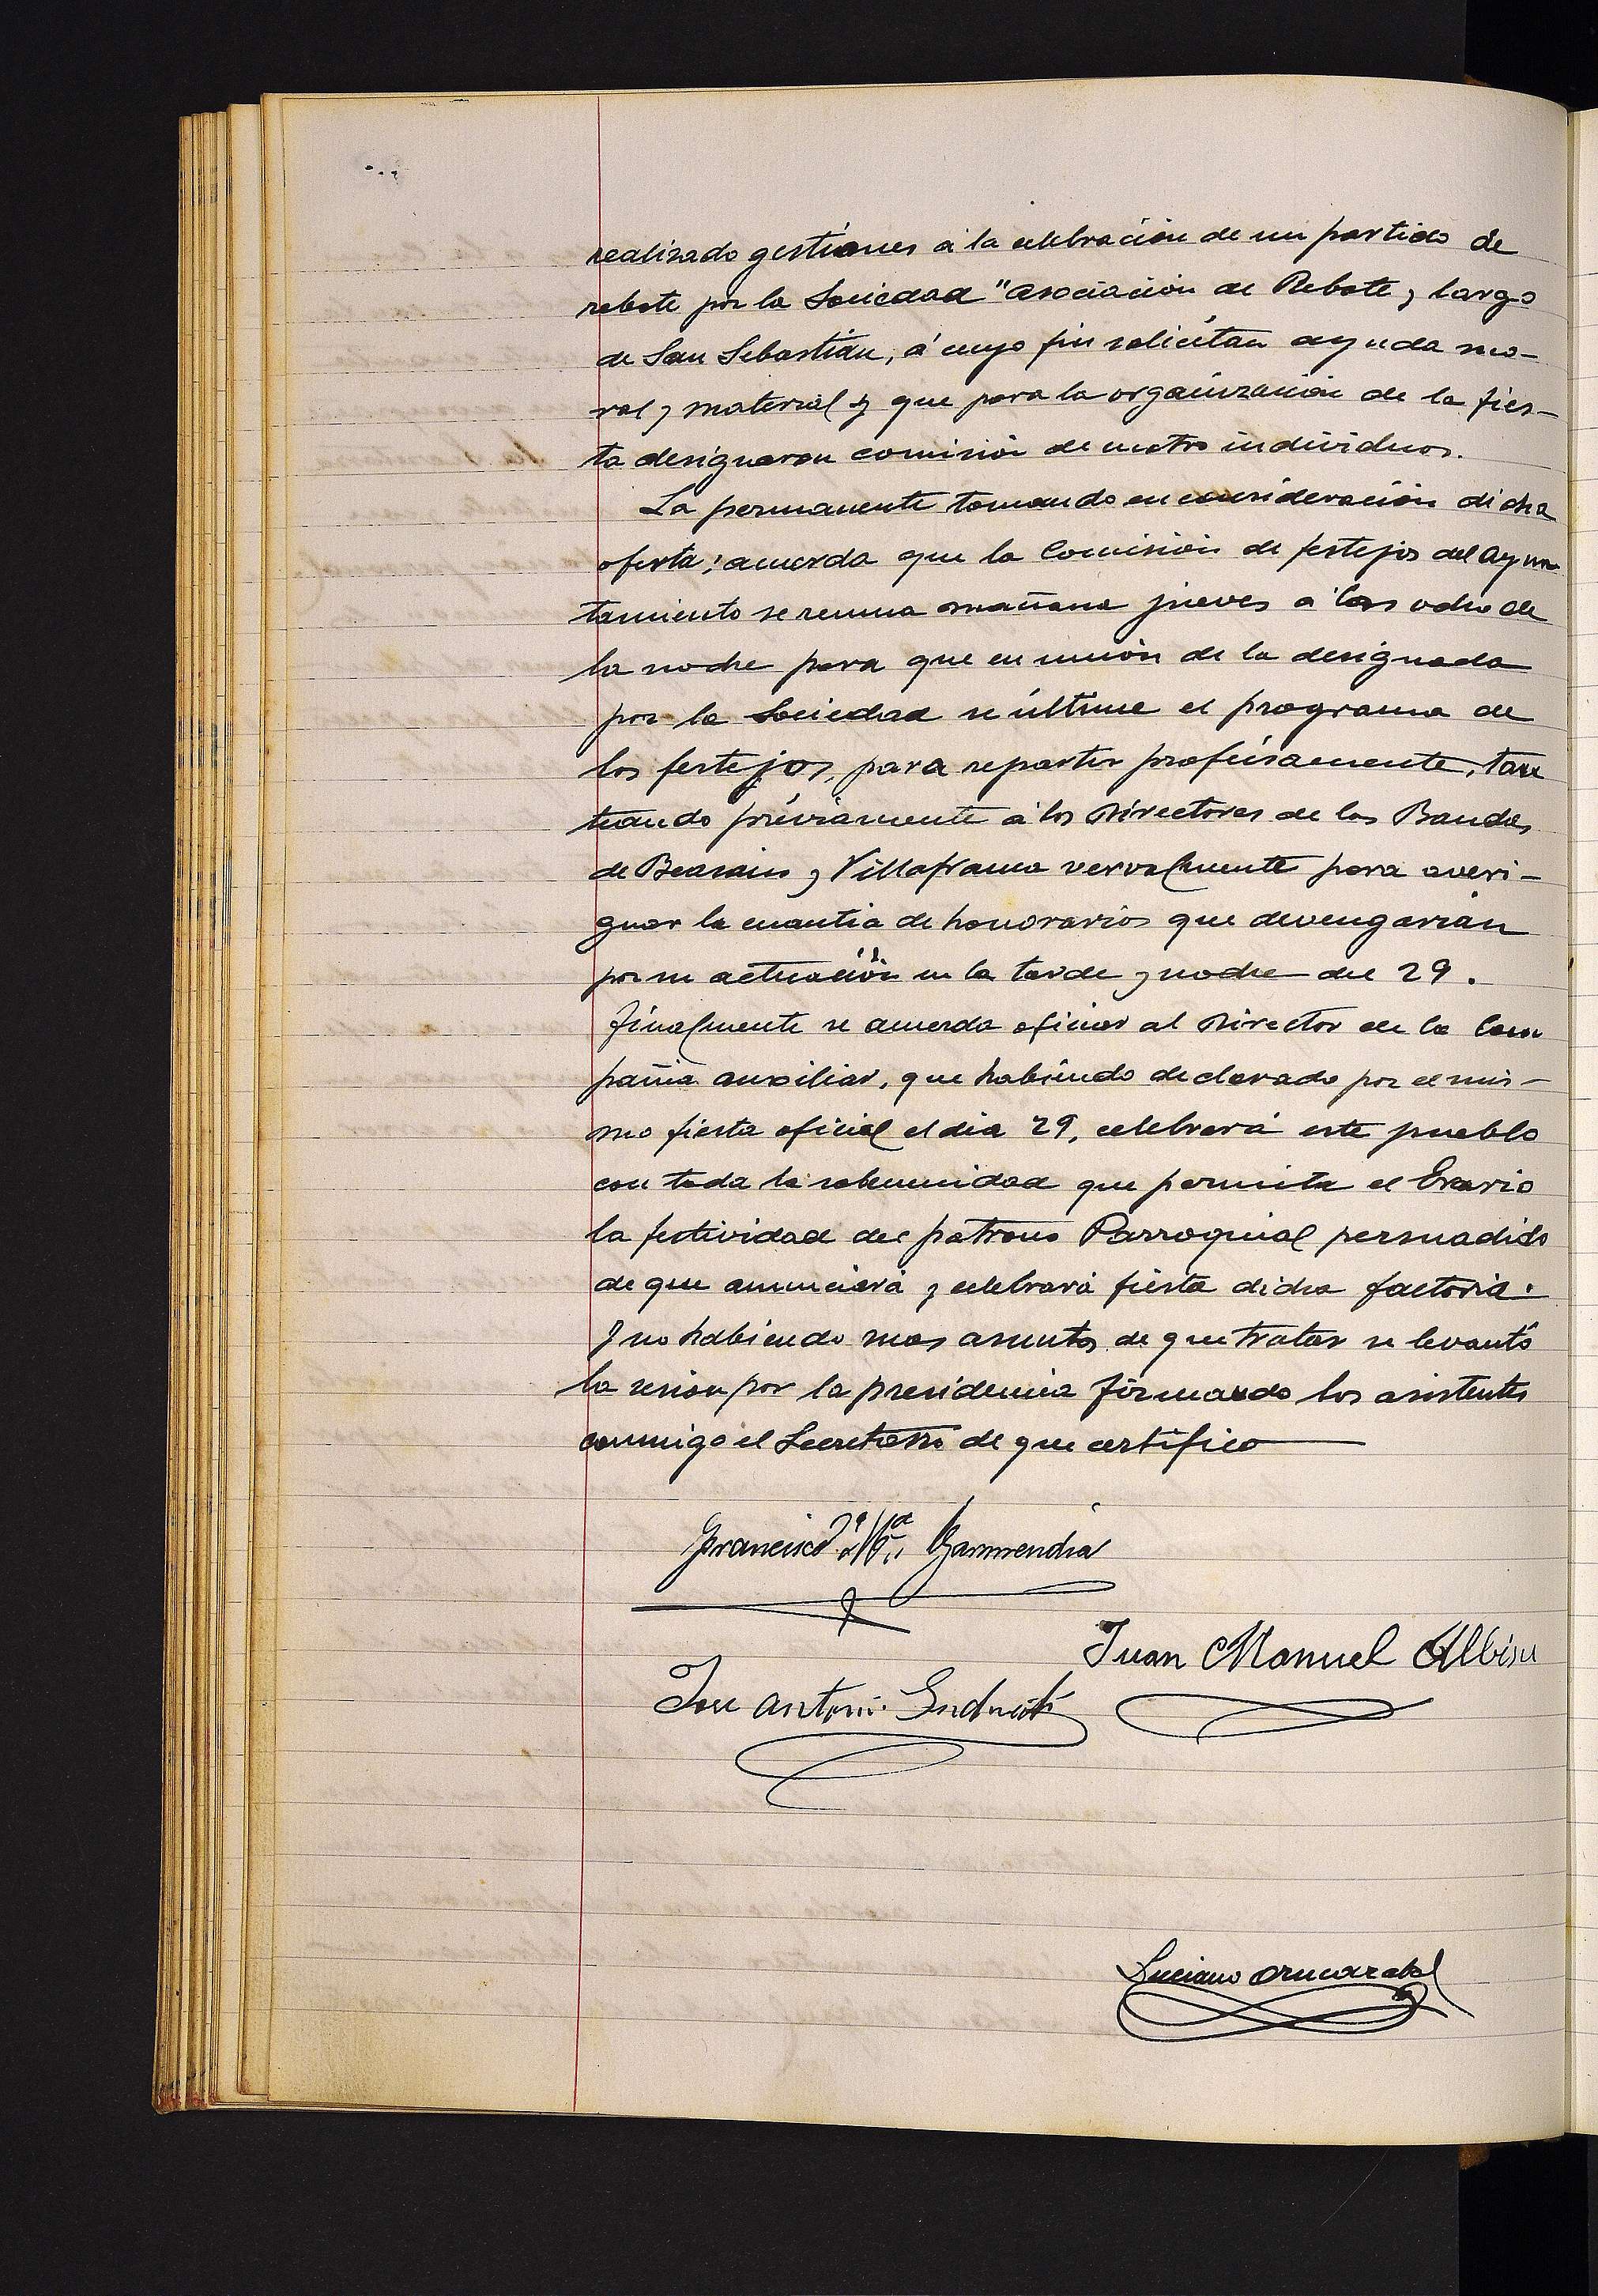 realizado gestiones á la celebración de un partido de
rebote por la Sociedad "Asociación de Rebote y largo
de San Sebastián, á cuyo fin solicitan ayuda mo-
ral y material y que para la organización de la fies-
ta designaron comisión de cuatro individuos.
La permanente tomando en consideración dicha
oferta; acuerda que la Comisión de festejos del Ayun
tamiento se reuna mañana jueves á las ocho de
la noche para que en unión de la designada
por la Sociedad se últime el programa de
los festejos, para repartir profusamente, tan
teando préviamente á los Directores de las Bandas
de Beasain y Villafranca vervalmente para averi-
guar la cuantia de honorarios que devengarian
por su actuación en la tarde y noche del 29.
Finalmente se acuerda oficiar al Director de la Com
pañia auxiliar, que habiendo declarado por el mis-
mo fiesta oficial el dia 29, celebrará este pueblo
con toda la solemnidad que permita el Erario
la festividad del patrono Parroquial persuadido
de que anunciará y celebrará fiesta dicha factoria.
Y no habiendo mas asuntos de que tratar se levantó
la sesion por la presidencia firmando los asistentes
conmigo el Secretario de que certifico
Francisco Mª Garmendia
Juan Manuel Albisu
Jose Antonio
Luciano